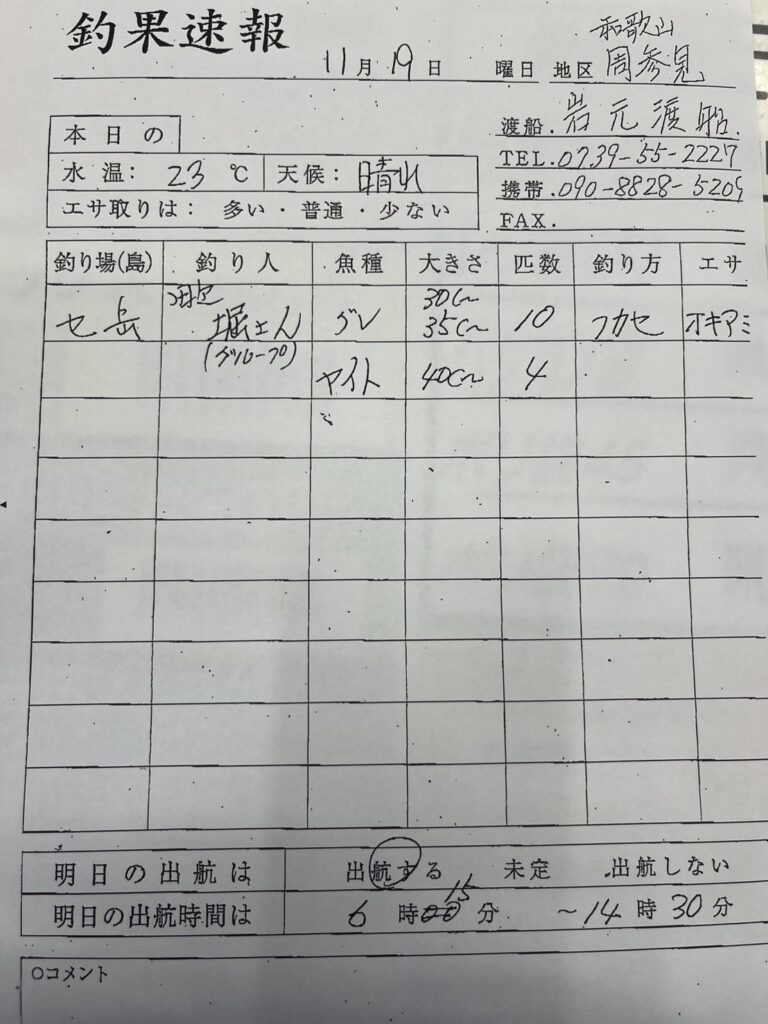 釣果速報
11月19日 曜日 地区 和歌山 周参見
渡船. 岩元渡船.
TEL. 0739-55-2227
携帯. 090-8828-5209
FAX.
本日の
水温: 23 ℃ 天候: 晴れ
エサ取りは: 多い・普通・少ない
釣り場(島) 釣り人 魚種 大きさ 匹数 釣り方 エサ
セ岳 堀さん グレ 30cm 35cm 10 フカセ オキアミ
(グループ)
ヤイト 40cm 4
明日の出航は 出航する 未定 出航しない
明日の出航時間は 6時15分 ~14時30分
○コメント